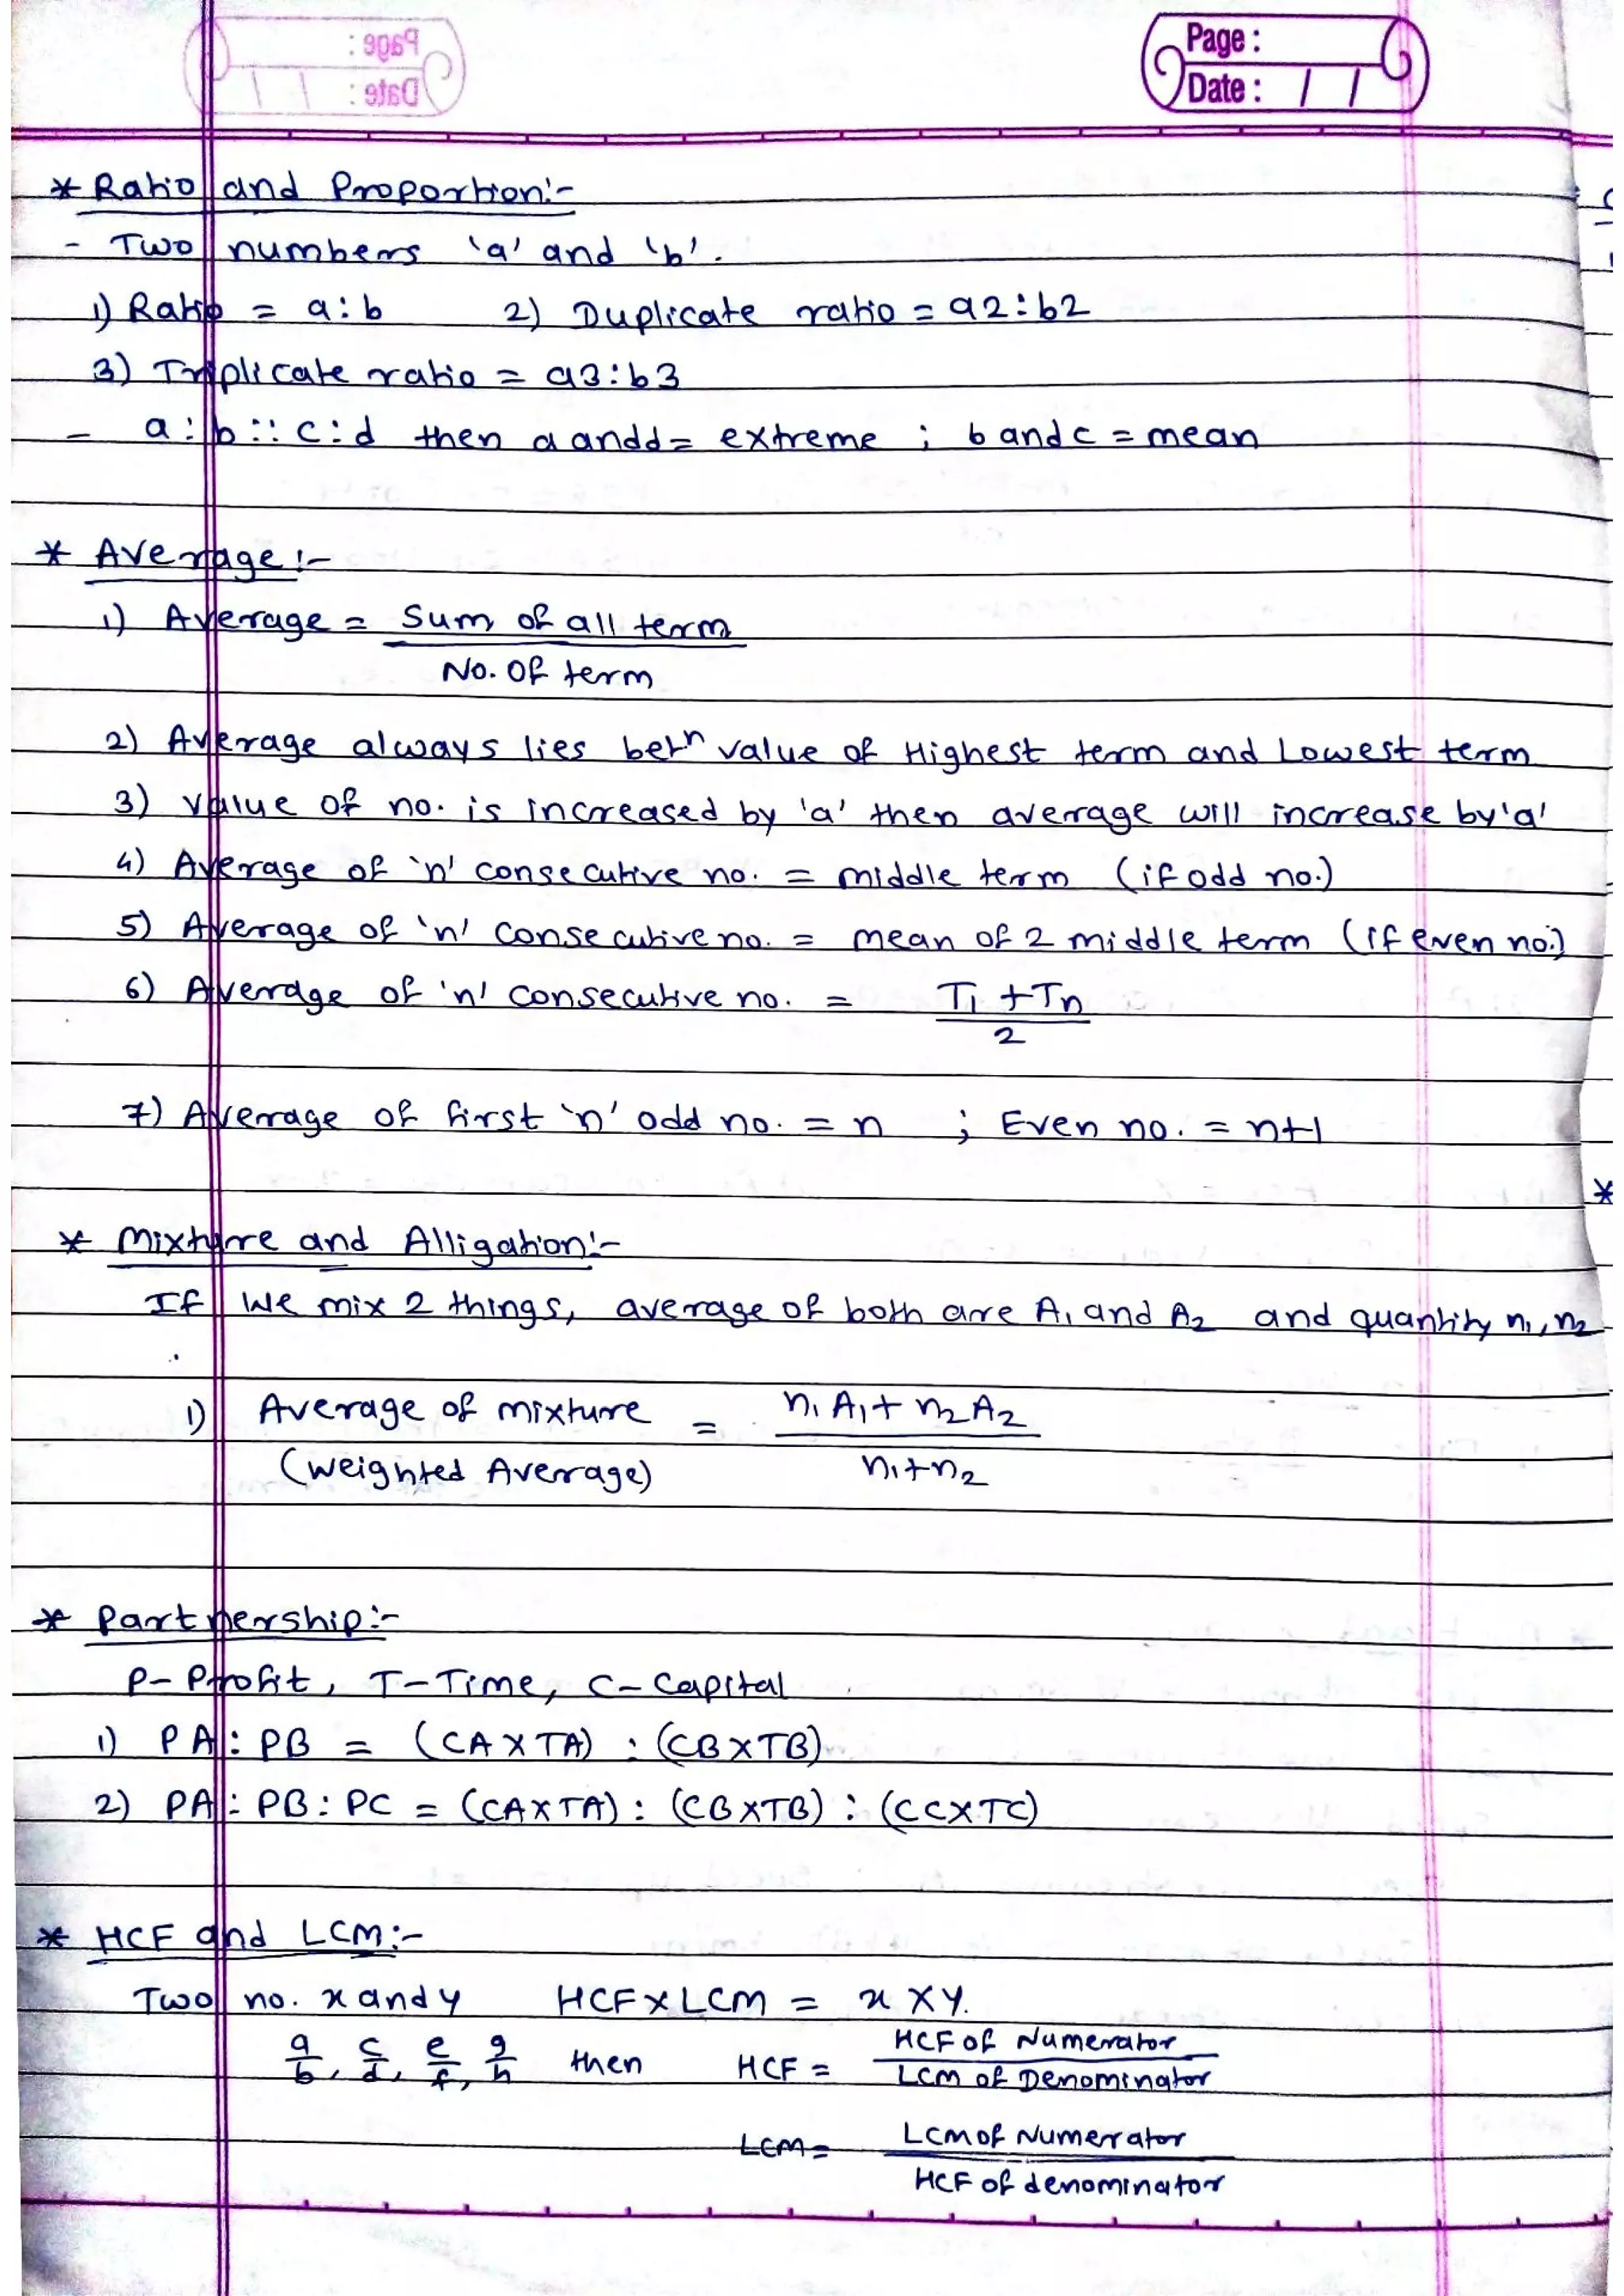 Page :
Date : / /
* Ratio and Proportion:-
- Two numbers 'a' and 'b'.
1) Ratio = a:b 2) Duplicate ratio = a2:b2
3) Triplicate ratio = a3:b3
- a:b::c:d then a and d = extreme ; b and c = mean
* Average :-
1) Average = Sum of all term
No. of term
2) Average always lies betn value of Highest term and Lowest term
3) Value of no. is increased by 'a' then average will increase by 'a'
4) Average of 'n' consecutive no. = middle term (if odd no.)
5) Average of 'n' consecutive no. = mean of 2 middle term (if even no.)
6) Average of 'n' consecutive no. = T1 + Tn
2
7) Average of first 'n' odd no. = n ; Even no. = n+1
* Mixture and Alligation:-
If we mix 2 things, average of both are A1 and A2 and quantity n1, n2
1) Average of mixture = n1 A1 + n2 A2
(Weighted Average) n1+n2
* Partnership:-
P- Profit, T- Time, C- Capital
1) PA : PB = (CA X TA) : (CB X TB)
2) PA : PB : PC = (CA X TA) : (CB X TB) : (CC X TC)
* HCF and LCM:-
Two no. x and y HCF X LCM = x X y.
a/b, c/d, e/f, g/h then HCF = HCF of Numerator
LCM of Denominator
LCM = LCM of Numerator
HCF of denominator